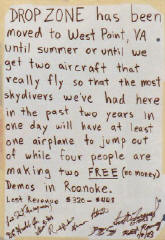 DROP ZONE has been
moved to West Point, VA
until summer or until we
get two aircraft that
really fly so that the most
skydivers we've had here
in the past two years in
one day will have at least
one airplane to jump out
of while four people are
making two FREE (no money)
Demos in Roanoke.
Lost Revenue $320 -